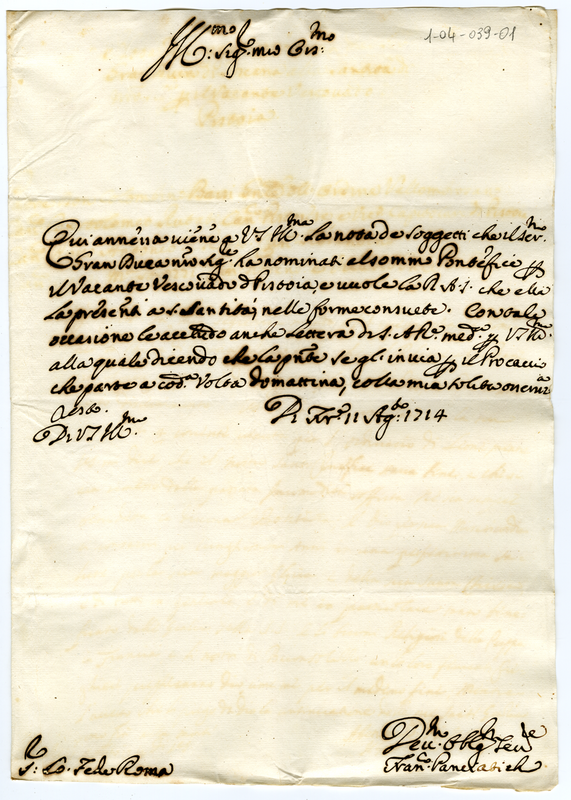 1-04-039-01
Ill:mo Sig:r mio Oss:mo
Qui annessa viene p V S Ill:ma la nota de Soggetti che il Ser:mo
Gran Duca nro Sig:re ha nominati al sommo Pontefice p
il Vacante Vescovado di Pistoia, e vuole la R. A. S. che ella
la presenti a S. Santità, nelle forme consuete. Con tale
occasione le accludo anche lettera di S. A. R. med:ma p V S Ill:ma
alla quale dicendo che la pnte se gl' invia p il Procaccio
che parte a cod:a Volta domattina, colla mia solita osservanza
resto.
Di V S Ill:ma
Di Fir:e 11 Ag:to 1714
S: Co: Fede Roma
Dev:mo Obl:mo Ser:re
Fran:co Panciatichi